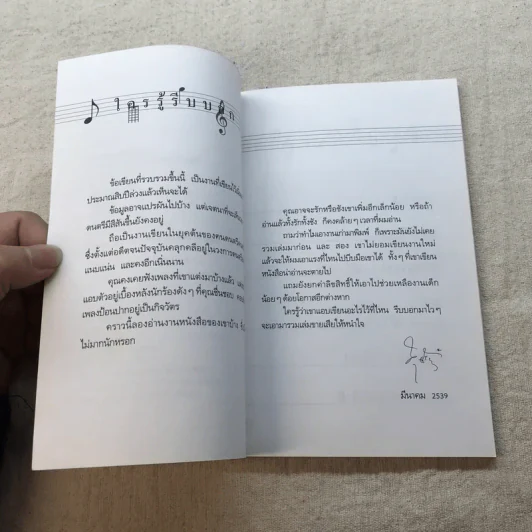 ใครรู้รีบบอก
ข้อเขียนที่รวบรวมขึ้นนี้ เป็นงานที่เขียน
ประมาณสิบปีล่วงแล้วเห็นจะได้
ข้อมูลอาจแปรผันไปบ้าง แต่เจตนาที่จะ
ดนตรีมีสีสันขึ้นยังคงอยู่
ถือเป็นงานเขียนในยุคต้นของคนดนตรี
ซึ่งตั้งแต่อดีตจนปัจจุบันคลุกคลีอยู่ในวงการดนตรี
แนบแน่น และคงอีกเนิ่นนาน
คุณคงเคยฟังเพลงที่เขาแต่งมาบ้างแล้ว
แอบตัวอยู่เบื้องหลังนักร้องดังๆ ที่คุณชื่นชอบ
เพลงป้อนปากอยู่เป็นกิจวัตร
คราวนี้ลองอ่านงานหนังสือของเขาบ้าง
ไม่มากนักหรอก
คุณอาจจะรักหรือชังเขาเพิ่มอีกเล็กน้อย หรือถ้า
อ่านแล้วทั้งรักทั้งชัง ก็คงคล้ายๆ เวลาที่ผมอ่าน
ถามว่าทำไมเอางานเก่ามาพิมพ์ ก็เพราะมันยังไม่เคย
รวมเล่มมาก่อน และ สอง เขาไม่ยอมเขียนงานใหม่
แล้วจะให้ผมเอาแรงที่ไหนไปบีบมือเขาได้ ทั้งๆ ที่เขาเขียน
หนังสือน่าอ่านจะตายไป
แถมยังยกค่าลิขสิทธิ์ให้เอาไปช่วยเหลืองานเด็ก
น้อยๆ ด้อยโอกาสอีกต่างหาก
ใครรู้ว่าเขาแอบเขียนอะไรไว้ที่ไหน รีบบอกมาไวๆ
จะเอามารวมเล่มขายเสียให้หนำใจ
มีนาคม 2539